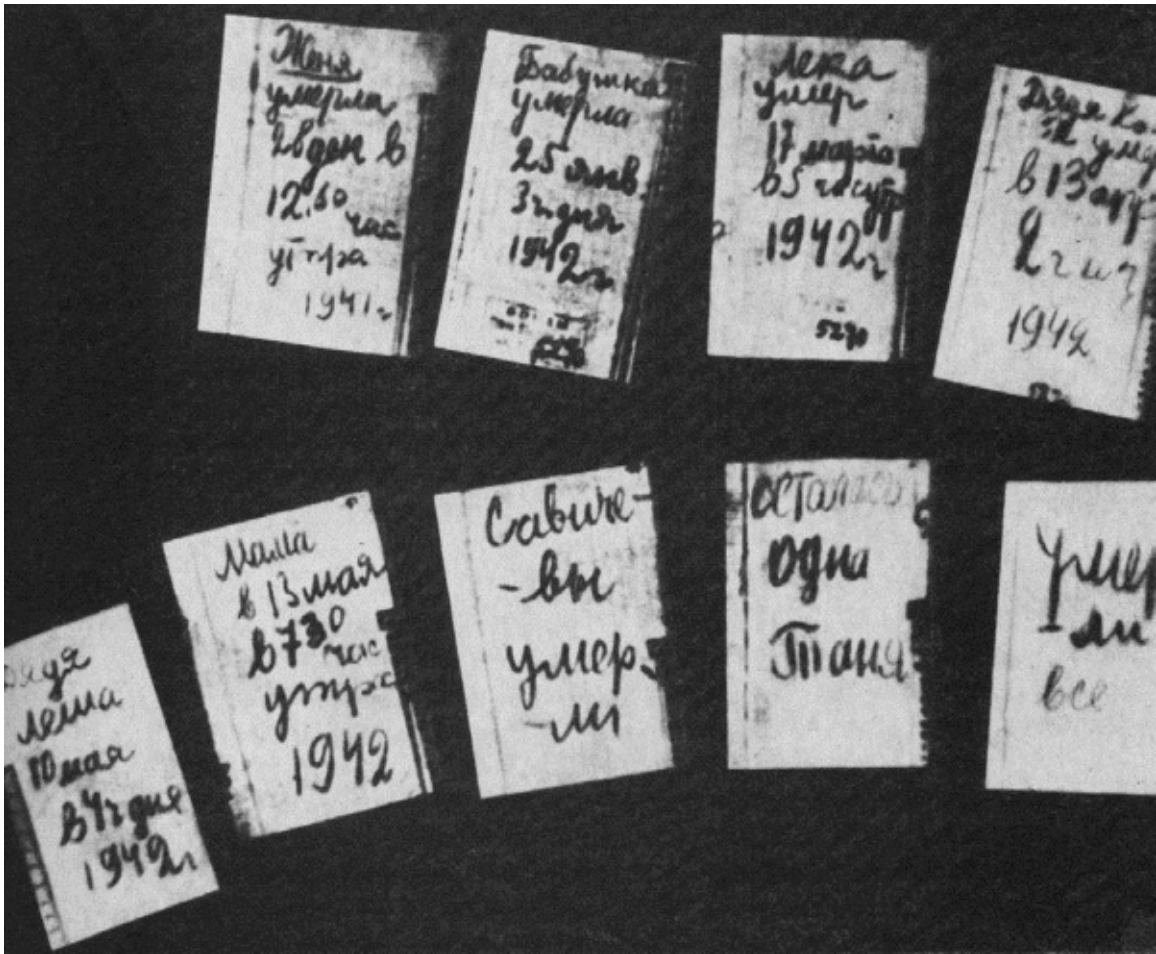 Женя
умерла
28 дек в
12.30
час
утра
1941 г
Бабушка
умерла
25 янв.
3 ч. дня
1942 г.
Лека
умер
17 марта
в 5 час утр
1942 г
Дядя
умер
в 13 апр
2 ч
1942
Дядя
Леша
10 мая
в 4 ч дня
1942 г
Мама
в 13 мая
в 7 30
час
утра
1942
Савиче-
-вы
умер-
-ли
умер
-ли
все
осталась
одна
Таня